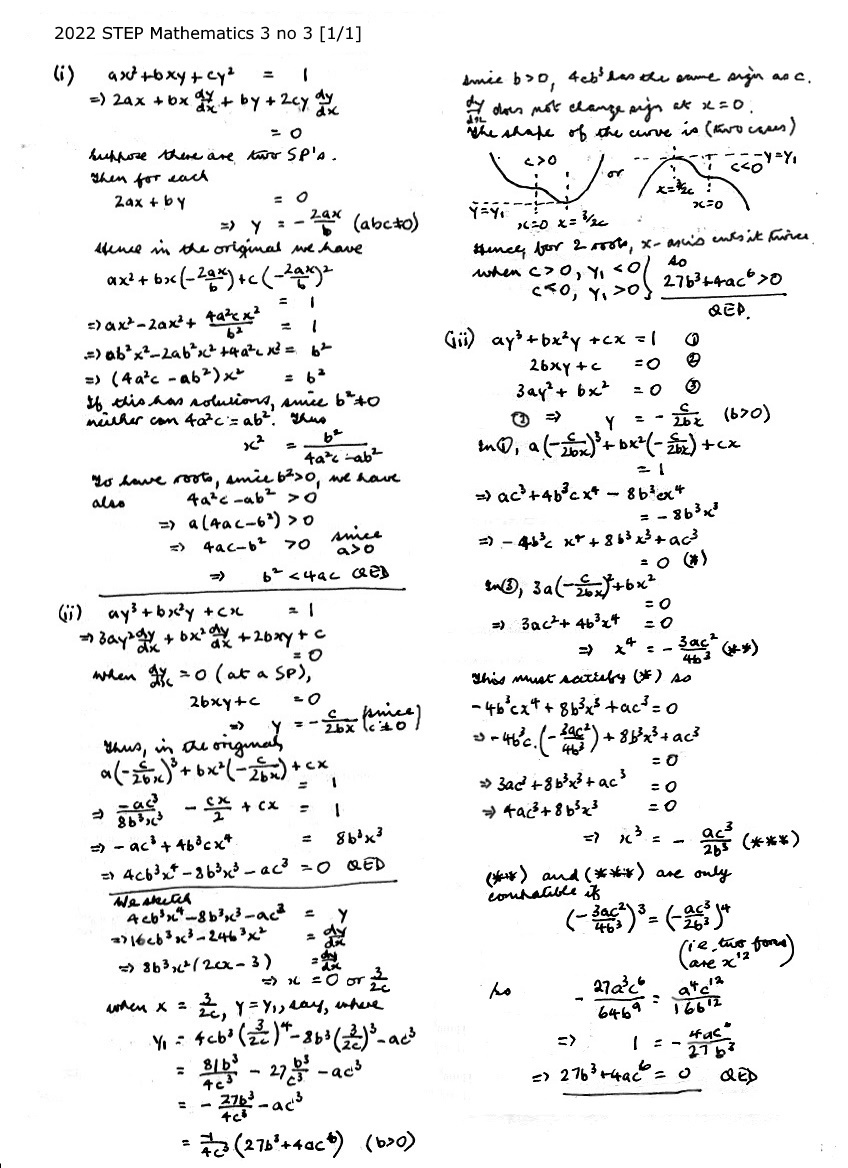 2022 STEP Mathematics 3 no 3 [1/1]
(i) ax²+bxy+cy² = 1
=> 2ax + bx dy/dx + by + 2cy dy/dx
= 0
Suppose there are two SP's.
Then for each
2ax + by = 0
=> y = -2ax/b (abc≠0)
Hence in the original we have
ax² + bx(-2ax/b)+c(-2ax/b)²
= 1
=> ax² - 2ax² + 4a²cx²/b² = 1
=> ab²x² - 2ab²x² + 4a²cx² = b²
=> (4a²c - ab²)x² = b²
If this has solutions, since b²≠0
neither can 4a²c = ab². Thus
x² = b²/(4a²c - ab²)
To have roots, since b²>0, we have
also 4a²c - ab² > 0
=> a(4ac-b²) > 0
=> 4ac-b² > 0 since a>0
=> b² < 4ac QED
(ii) ay³ + bx²y + cx = 1
=> 3ay² dy/dx + bx² dy/dx + 2bxy + c
= 0
when dy/dx = 0 (at a SP),
2bxy+c = 0
=> y = -c/2bx (since c≠0)
Thus, in the original,
a(-c/2bx)³ + bx²(-c/2bx) + cx
= 1
=> -ac³/8b³x³ - cx/2 + cx = 1
=> -ac³ + 4b³cx⁴ = 8b³x³
=> 4cb³x⁴ - 8b³x³ - ac³ = 0 QED
We sketch
4cb³x⁴ - 8b³x³ - ac³ = Y
=> 16cb³x³ - 24b³x² = dy/dx
=> 8b³x²(2cx - 3) = dy/dx
=> x = 0 or 3/2c
when x = 3/2c, Y = Y₁, say, where
Y₁ = 4cb³(3/2c)⁴ - 8b³(3/2c)³ - ac³
= 81b³/4c³ - 27b³/c³ - ac³
= -27b³/4c³ - ac³
= -1/4c³ (27b³+4ac⁶) (b>0)
since b>0, 4cb³ has the same sign as c.
dy/dx does not change sign at x=0.
The shape of the curve is (two cases)
c>0
or
c<0
Y=Y₁
x=3/2c
x=0
Y=Y₁
x=0 x=3/2c
Hence, for 2 roots, x-axis cuts it twice.
when c>0, Y₁<0 } so
c<0, Y₁>0 } 27b³+4ac⁶>0
QED.
(iii) ay³ + bx²y + cx = 1 ①
2bxy + c = 0 ②
3ay² + bx² = 0 ③
② => y = -c/2bx (b>0)
In ①, a(-c/2bx)³ + bx²(-c/2bx) + cx
= 1
=> ac³ + 4b³cx⁴ - 8b³cx⁴
= -8b³x³
=> -4b³c x⁴ + 8b³x³ + ac³
= 0 (*)
In ③, 3a(-c/2bx)² + bx²
= 0
=> 3ac² + 4b³x⁴ = 0
=> x⁴ = -3ac²/4b³ (**)
This must satisfy (*) so
-4b³cx⁴ + 8b³x³ + ac³ = 0
=> -4b³c.(-3ac²/4b³) + 8b³x³ + ac³
= 0
=> 3ac³ + 8b³x³ + ac³ = 0
=> 4ac³ + 8b³x³ = 0
=> x³ = -ac³/2b³ (***)
(**) and (***) are only
compatible if
(-3ac²/4b³)³ = (-ac³/2b³)⁴
(i.e. two forms)
are x¹²
So -27a³c⁶/64b⁹ = a⁴c¹²/16b¹²
=> 1 = -4ac⁶/27b³
=> 27b³+4ac⁶ = 0 QED